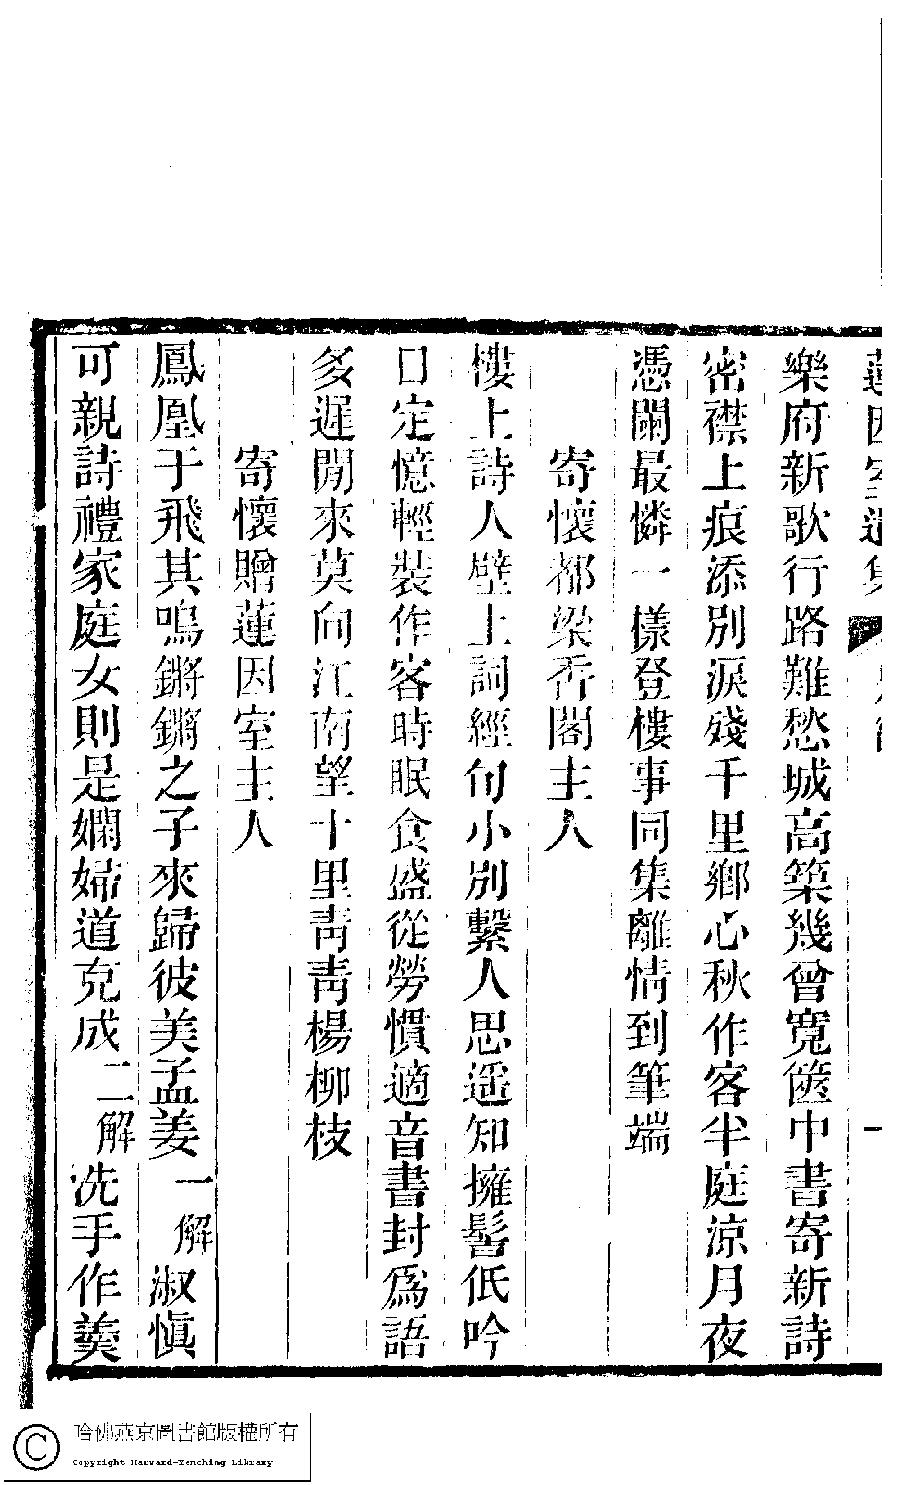 蓮因室遺集
樂府新歌行路難愁城高築幾曾寬篋中書寄新詩
密襟上痕添別淚殘千里鄉心秋作客半庭涼月夜
憑闌最憐一樣登樓事同集離情到筆端
寄懷都梁香閣主人
樓上詩人壁上詞經旬小別繫人思遥知擁髻低吟
日定憶輕裝作客時眠食盛從勞慣適音書封爲語
多遲閒來莫向江南望十里靑靑楊柳枝
寄懷贈蓮因室主人
鳳凰于飛其鳴鏘鏘之子來歸彼美孟姜一解淑愼
可親詩禮家庭女則是嫻婦道克成二解洗手作羹
哈佛燕京圖書館版權所有
Copyright Harvard-Yenching Library